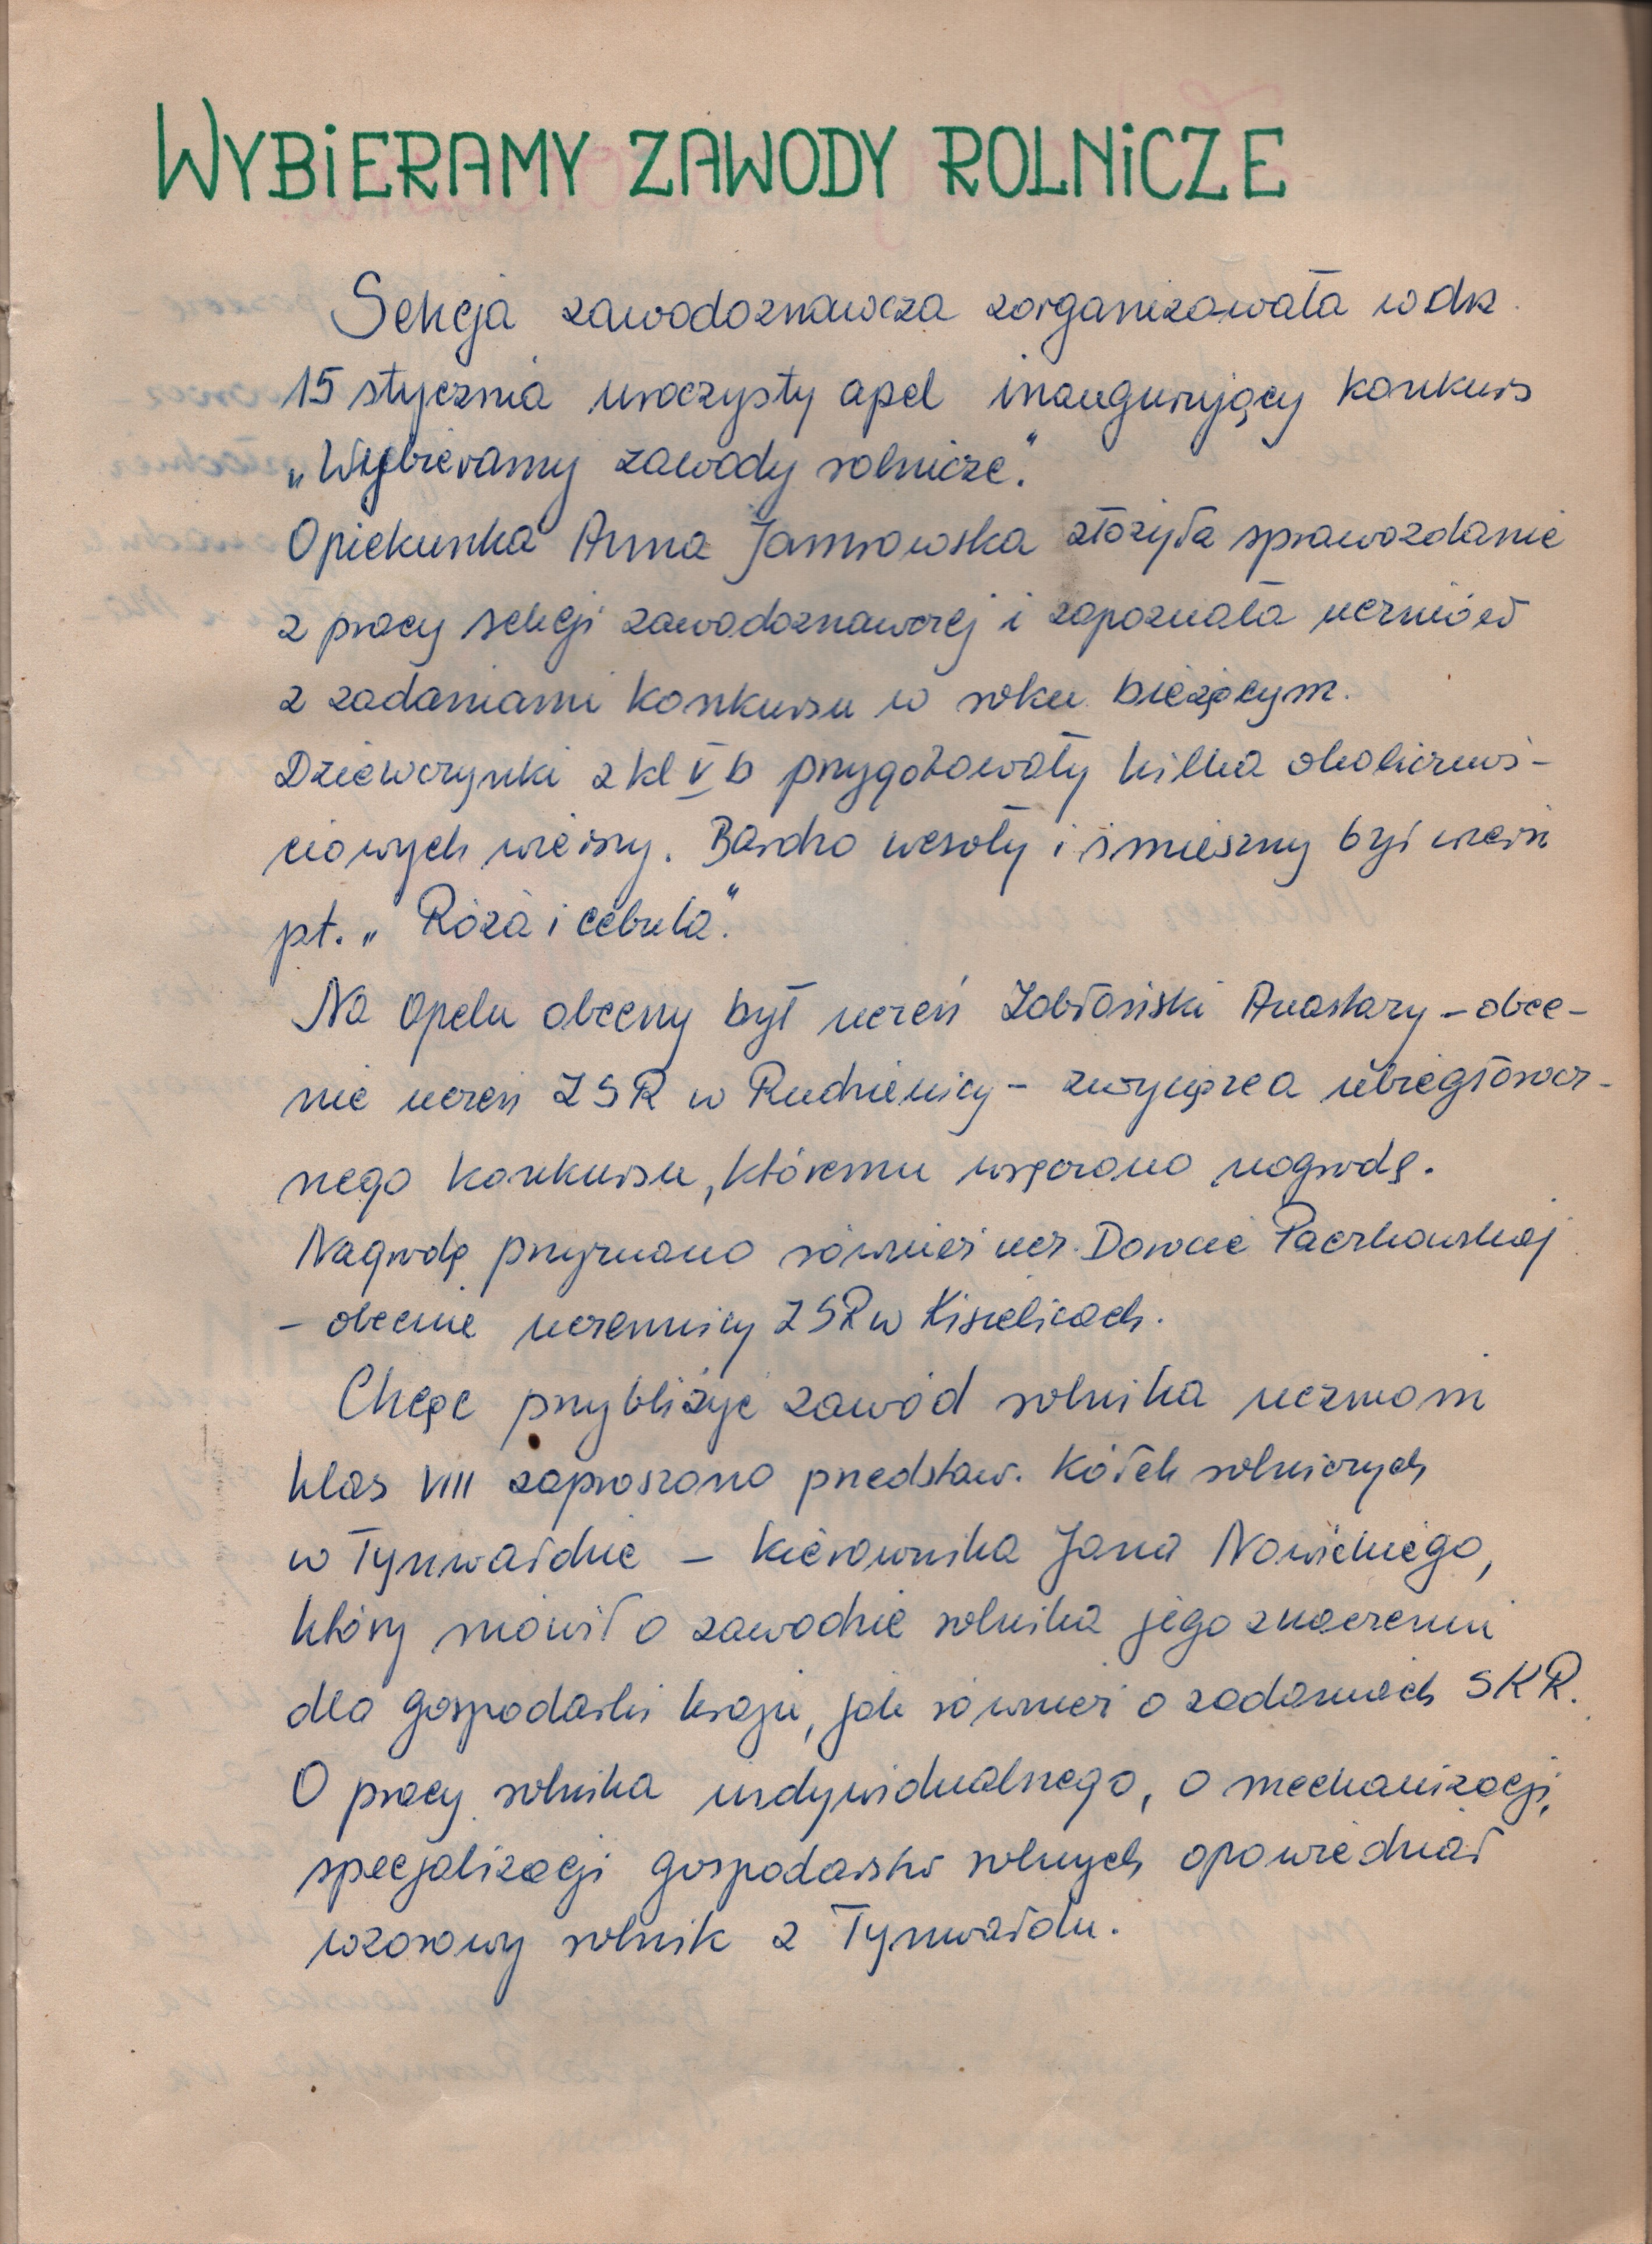 WYBiERAMY ZAWODY ROLNiCZE
Sekcja zawodoznawcza zorganizowała w dn.
15 stycznia uroczysty apel inaugurujący konkurs
„Wybieramy zawody rolnicze”.
Opiekunka Anna Jamrowska złożyła sprawozdanie
z pracy sekcji zawodoznawczej i zapoznała uczniów
z zadaniami konkursu w roku bieżącym.
Dziewczynki z kl V b przygotowały kilka okolicznoś-
ciowych wierszy. Bardzo wesoły i śmieszny był wiersz
pt. „Róża i cebula”.
Na Apelu obecny był uczeń Anastazy – obec-
nie uczeń ZSR w Rudzienicy – zwycięzca ubiegłorocz-
nego konkursu, któremu wręczono nagrodę.
Nagrodę przyznano również ucz. Dorocie Paczkowskiej
– obecnie uczennicy ZSR w Kisielicach.
Chcąc przybliżyć zawód rolnika uczniom
klas VIII zaproszono przedstaw. Kółek rolniczych
w Tynwałdzie – kierownika Jana Nowickiego,
który mówił o zawodzie rolnika jego znaczeniu
dla gospodarki kraju, jak również o zadaniach SKR.
O pracy rolnika indywidualnego, o mechanizacji,
specjalizacji gospodarstw rolnych opowiedział
wzorowy rolnik z Tynwałdu.